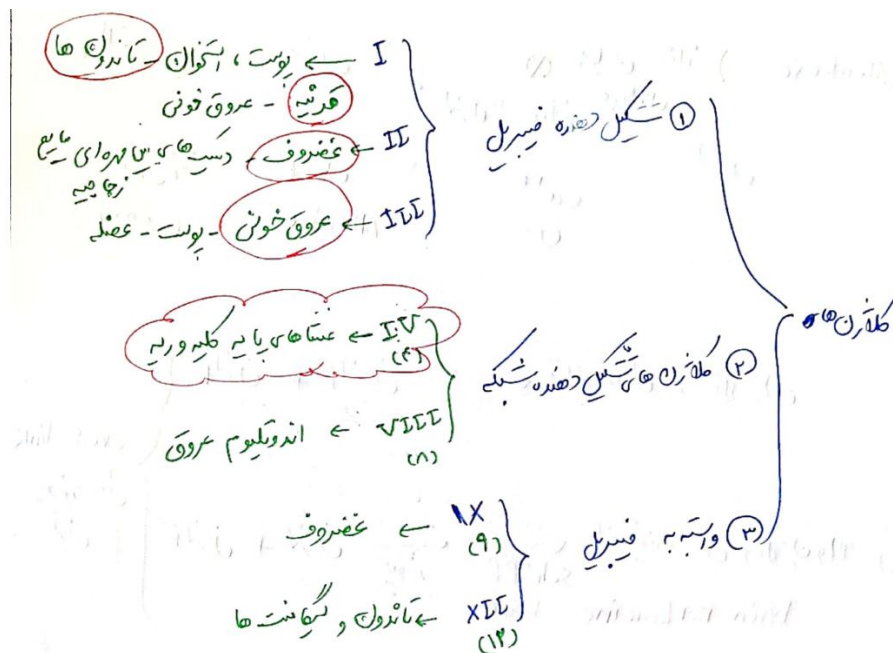 کلاژن های
① تشکیل دهنده فیبریل
I ← پوست ، استخوان - تاندون ها
قرنیه - عروق خونی
II ← غضروف - دیسک های بین مهره ای مایع
زجاجیه
III ← عروق خونی - پوست - عضله
② کلاژن های تشکیل دهنده شبکه
IV ← غشاهای پایه کلیه و ریه
(۴)
VIII ← اندوتلیوم عروق
(۸)
③ وابسته به فیبریل
IX ← غضروف
(۹)
XII ← تاندون و لیگامنت ها
(۱۲)